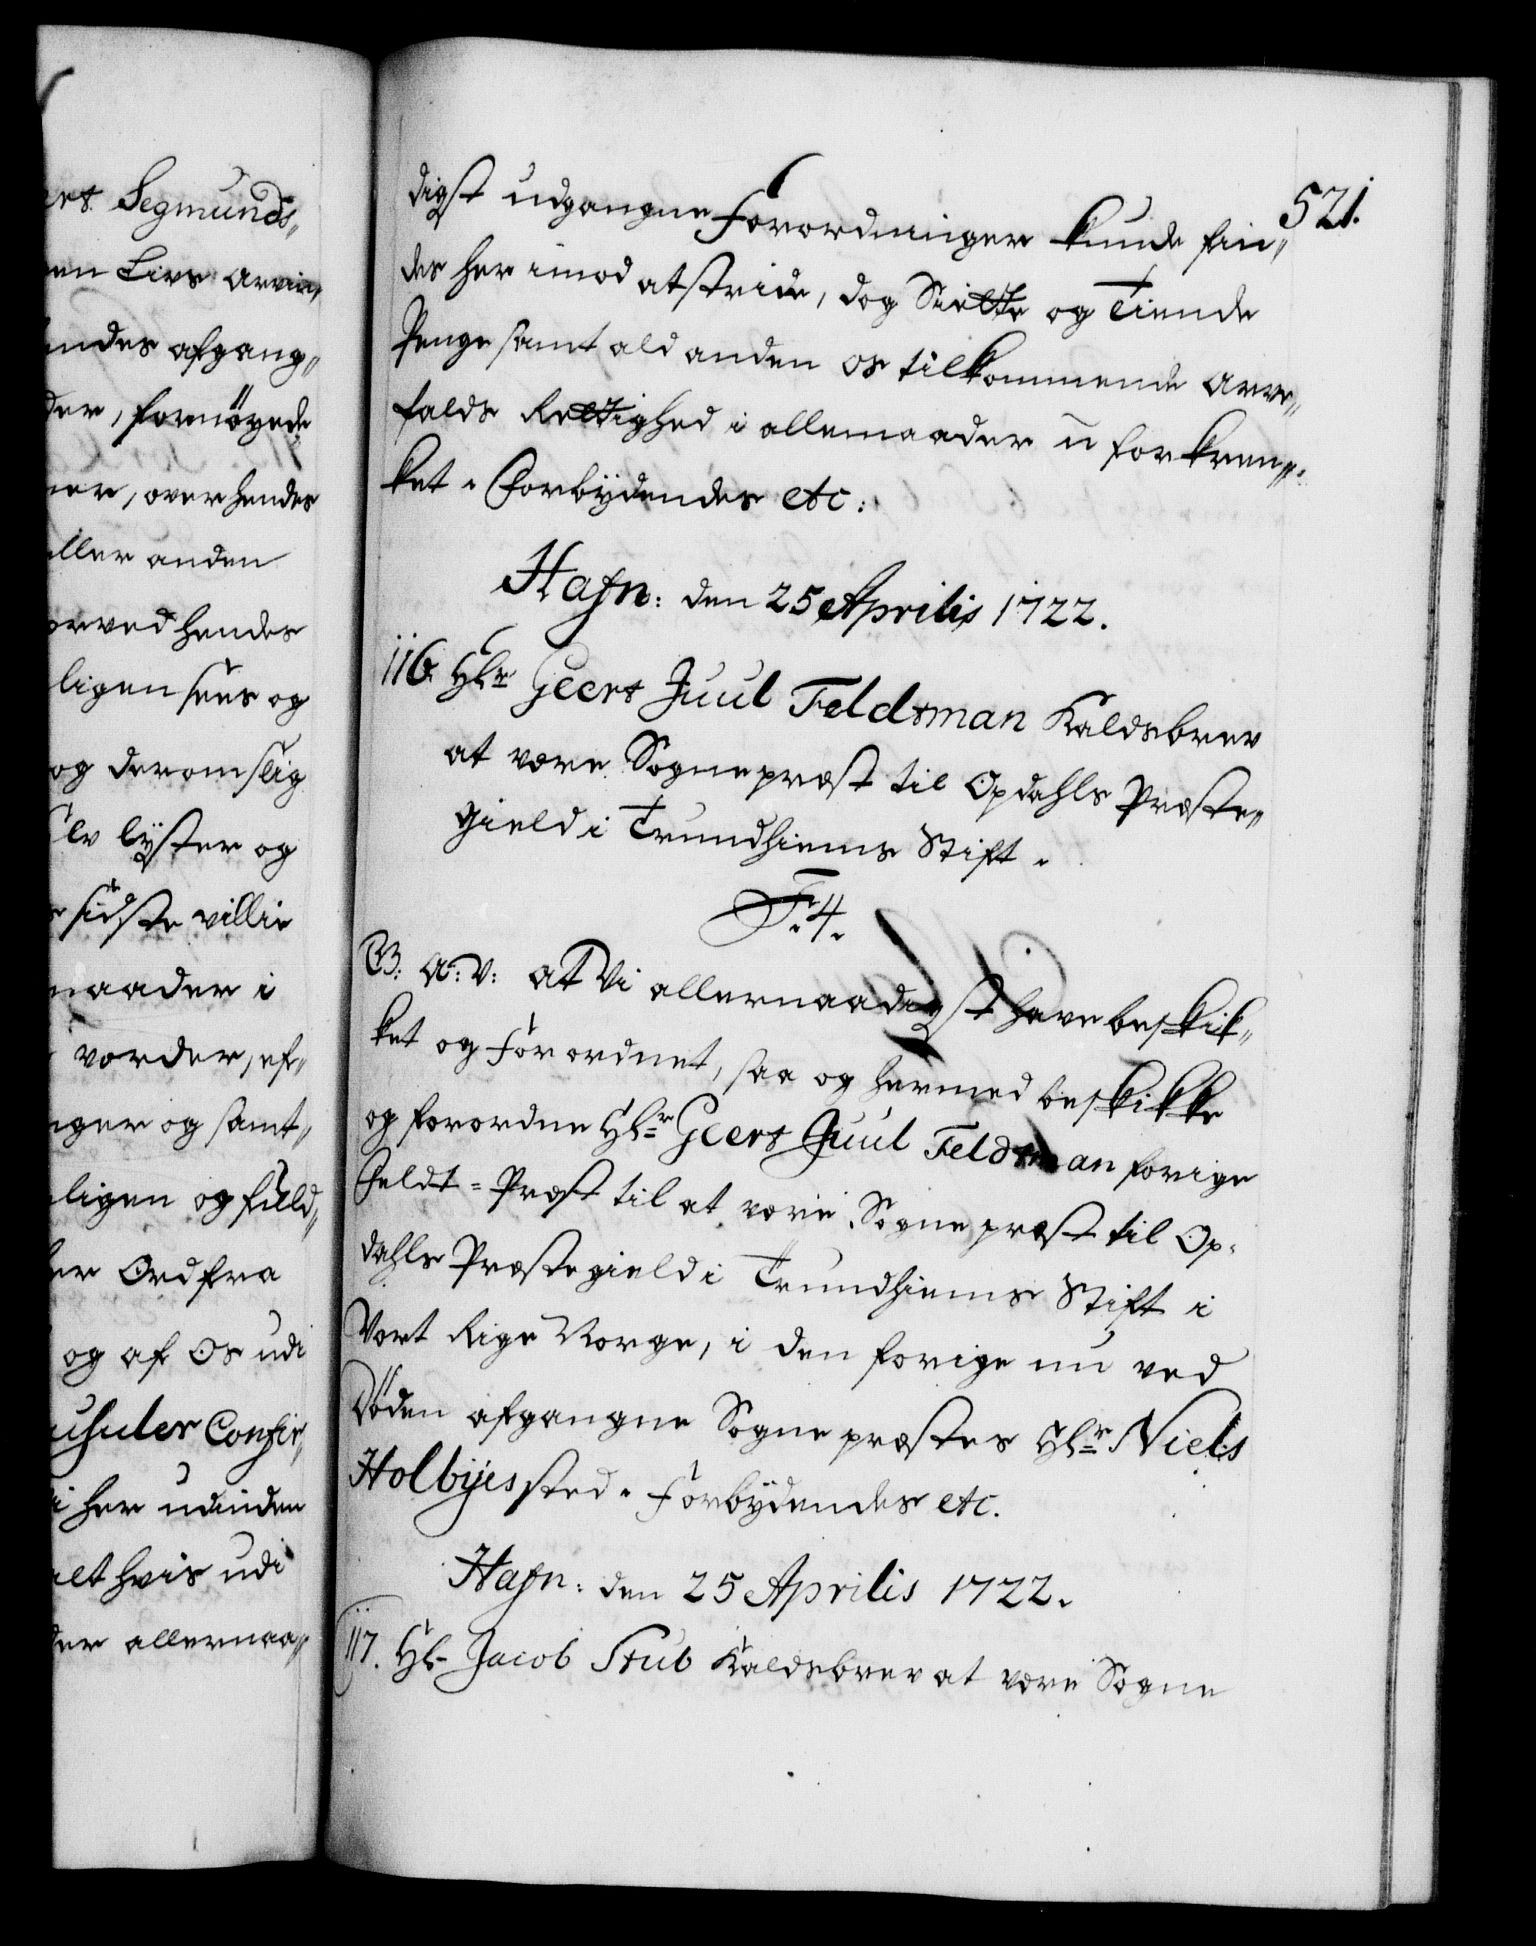 ert Segmunds„
en Livs Arvin„
endes afgang„
der, fornøyede
ner, over hendes
eller anden
orved hendes
ligen sees og
og derom slig
elv lyster og
sidste villie
maader i
vorder, ef„
nger og samt„
ligen og fuld„
er Ord fra
og af Os udi
usuler Confir„
i her udinden
alt hvis udi
der allernaa„
521.
digst udgangne Forordninger kunde fin„
des her imod at stride, dog Siette og Tiende
Penge samt ald anden os tilkommende Arve„
falds Rettighed i allemaader u forkren„
ket. Forbydendes etc:
Hafn: den 25 Aprilis 1722.
116. Hr Geert Juul Feldtman Kaldsbrev
at være Sognepræst til Opdahls Præste„
gield i Trundhiems Stift.
F. 4.
G: A: V: at Vi allernaadigst have beskik„
ket og forordnet, saa og hermed beskikke
og forordne Hr Geert Juul Feldtman forige
Feldt-Præst til at være Sognepræst til Op„
dahls Præstegield i Trundhiems Stift i
Vort Rige Norge, i den forige nu ved
Døden afgangne Sognepræstes Hr Niels
Holbyes sted. Forbydendes etc.
Hafn: den 25 Aprilis 1722.
117. Hr Jacob Stub Kaldsbrev at være Sogne